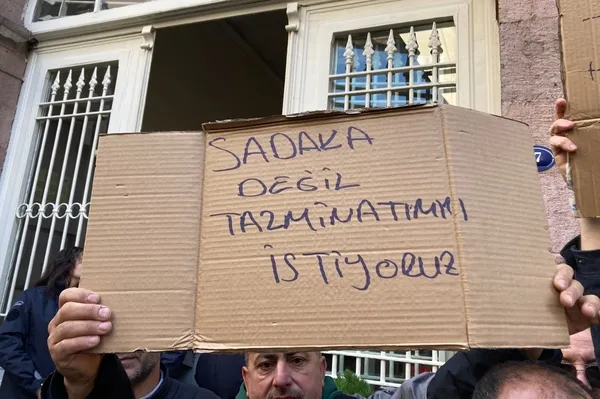 SADAKA
DEĞİL
TAZMİNATIMI
İSTİYORUZ
7